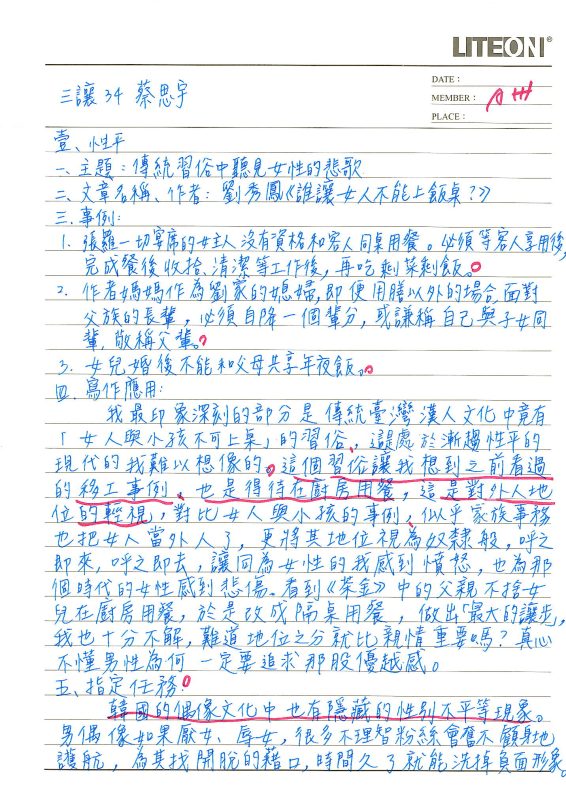 LITEON®
DATE：
MEMBER：
PLACE：
三讓 34 蔡思宇
壹、性平
一、主題：傳統習俗中聽見女性的悲歌
二、文章名稱、作者：劉秀鳳《誰讓女人不能上飯桌？》
三、事例：
1. 張羅一切宴席的女主人沒有資格和客人同桌用餐。必須等客人享用後，
完成餐後收拾、清潔等工作後，再吃剩菜剩飯。
2. 作者媽媽作為劉家的媳婦，即使用膳以外的場合，面對
父族的長輩，必須自降一個輩分，或謙稱自己與子女同
輩，敬稱父輩。
3. 女兒婚後不能和父母共享年夜飯。
四、寫作應用：
我最印象深刻的部分是傳統臺灣漢人文化中竟有
「女人與小孩不可上桌」的習俗，這是處於漸趨性平的
現代的我難以想像的。這個習俗讓我想到之前看過
的移工事例，也是得待在廚房用餐，這是對外人地
位的輕視，對比女人與小孩的事例，似乎家族事務
也把女人當外人了，更將其地位視為奴隸般，呼之
即來，呼之即去，讓同為女性的我感到憤怒，也為那
個時代的女性感到悲傷。看到《茶金》中的父親不捨女
兒在廚房用餐，於是改成隔桌用餐，做出「最大的讓步」，
我也十分不解，難道地位之分就比親情重要嗎？真心
不懂男性為何一定要追求那股優越感。
五、指定任務：
韓國的偶像文化中也有隱藏的性別不平等現象。
男偶像如果厭女、辱女，很多不理智粉絲會奮不顧身地
護航，為其找開脫的藉口，時間久了就能洗掉負面形象。